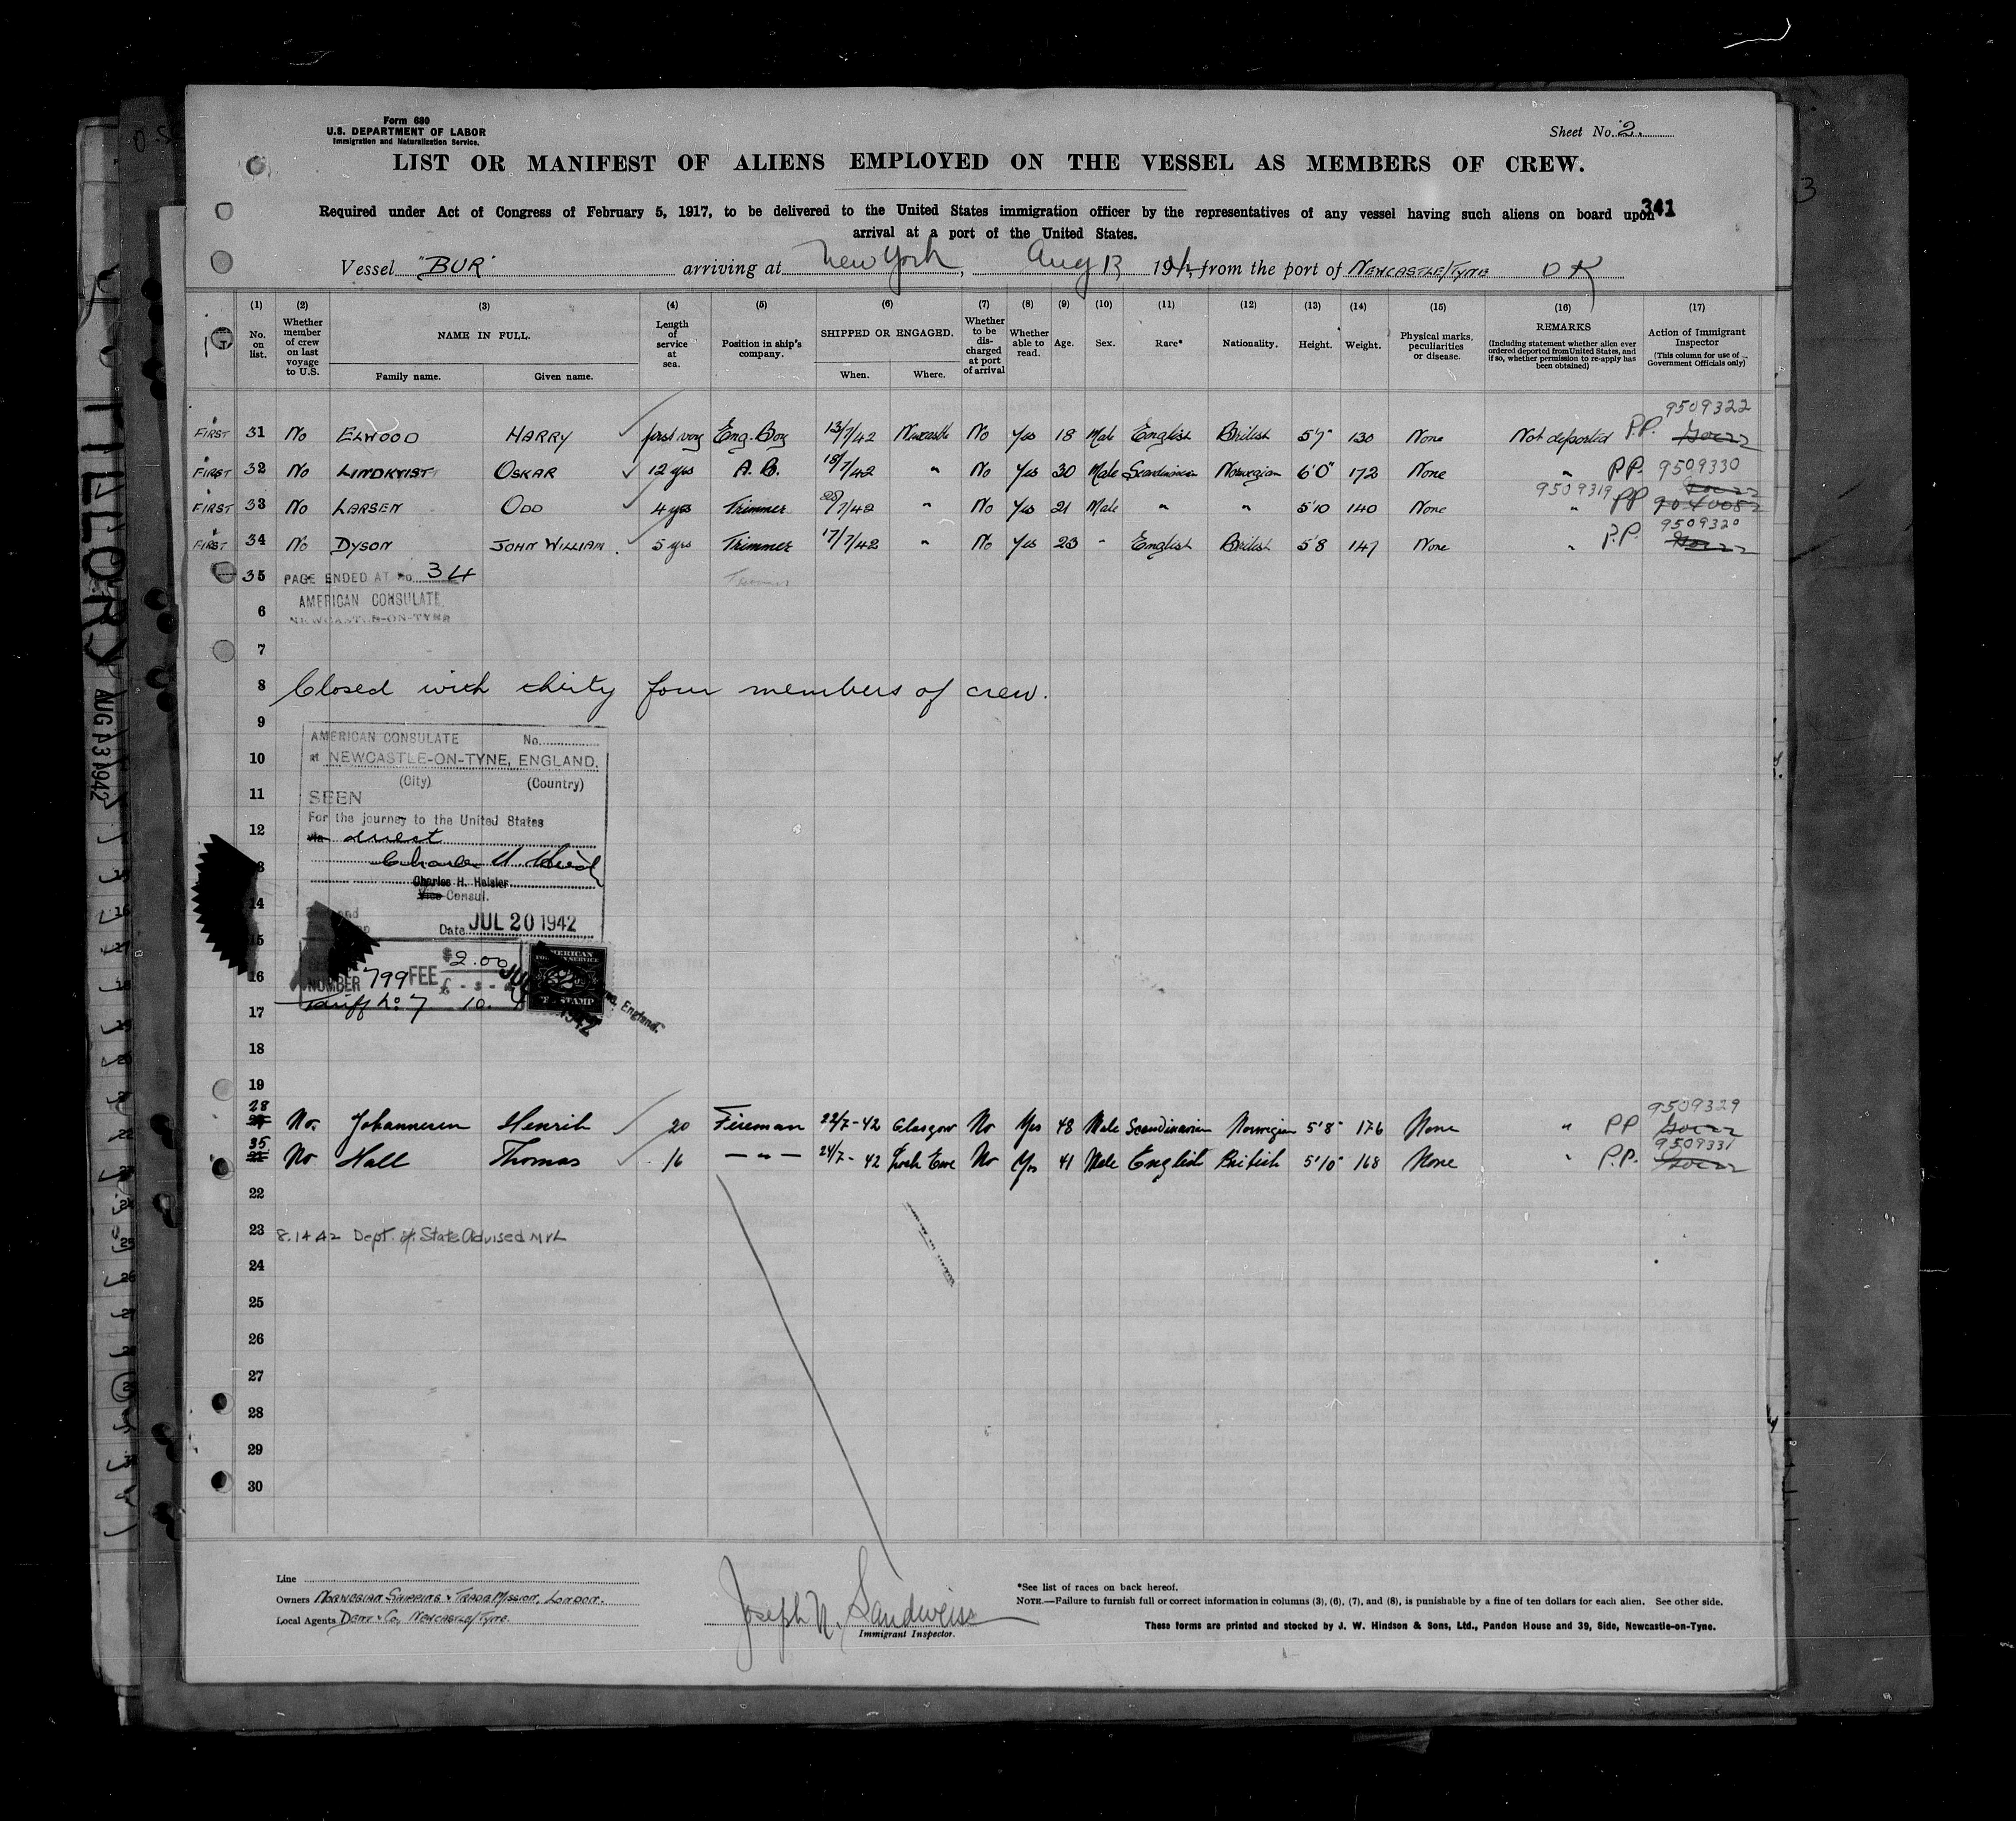 Form 680
U.S. DEPARTMENT OF LABOR
Immigration and Naturalization Service.
Sheet No. 2.
LIST OR MANIFEST OF ALIENS EMPLOYED ON THE VESSEL AS MEMBERS OF CREW.
341
Required under Act of Congress of February 5, 1917, to be delivered to the United States immigration officer by the representatives of any vessel having such aliens on board upon
arrival at a port of the United States.
Vessel "BUR" arriving at New York, Aug 13 1942 from the port of NEWCASTLE/TYNE OK
(1) (2) (3) (4) (5) (6) (7) (8) (9) (10) (11) (12) (13) (14) (15) (16) (17)
No. on list.
Whether member of crew on last voyage to U.S.
NAME IN FULL.
Family name. Given name.
Length of service at sea.
Position in ship's company.
SHIPPED OR ENGAGED.
When. Where.
Whether to be discharged at port of arrival
Whether able to read.
Age.
Sex.
Race*
Nationality.
Height.
Weight.
Physical marks, peculiarities or disease.
REMARKS
(Including statement whether alien ever ordered deported from United States, and if so, whether permission to re-apply has been obtained)
Action of Immigrant Inspector
(This column for use of Government Officials only)
9509322
FIRST 31 No ELWOOD HARRY first voy Eng. Boy 13/7/42 Newcastle No Yes 18 Male English British 5'7" 130 None Not deported P.P.
FIRST 32 No LINDKVIST OSKAR 12 yrs A.B. 18/7/42 " No Yes 30 Male Scandinavian Norwegian 6'0" 172 None " P.P. 9509330
9509319
FIRST 33 No LARSEN ODD 4 yrs Trimmer 28/7/42 " No Yes 21 Male " " 5'10 140 None " PP
9509320
FIRST 34 No DYSON JOHN WILLIAM. 5 yrs Trimmer 17/7/42 " No Yes 23 " English British 5'8 147 None " P.P.
35 PAGE ENDED AT No. 34
AMERICAN CONSULATE,
6
NEWCASTLE-ON-TYNE
7
8 Closed with thirty four members of crew.
9
AMERICAN CONSULATE No.
10 at NEWCASTLE-ON-TYNE, ENGLAND.
(City) (Country)
11 SEEN
For the journey to the United States
12 via direct
Charles H. Heisler
Vice Consul.
14
Date JUL 20 1942
15
16 NUMBER 799 FEE $2.00
Tariff No 7
17
18
19
9509329
28 No. Johannesen Henrik 20 Fireman 22/7-42 Glasgow No Yes 48 Male Scandinavian Norwegian 5'8" 176 None " PP
9509331
35 No Hall Thomas 16 — " — 24/7-42 Loch Ewe No Yes 41 Male English British 5'10" 168 None " P.P.
22
23 8.14.42 Dept. of State Advised MVL
24
25
26
27
28
29
30
Line
Owners NORWEGIAN SHIPPING & TRADE MISSION, LONDON.
Local Agents DENT & Co, NEWCASTLE/TYNE.
Joseph N. Sandweiss
Immigrant Inspector.
*See list of races on back hereof.
NOTE.—Failure to furnish full or correct information in columns (3), (6), (7), and (8), is punishable by a fine of ten dollars for each alien. See other side.
These forms are printed and stocked by J. W. Hindson & Sons, Ltd., Pandon House and 39, Side, Newcastle-on-Tyne.
AUG 13 1942